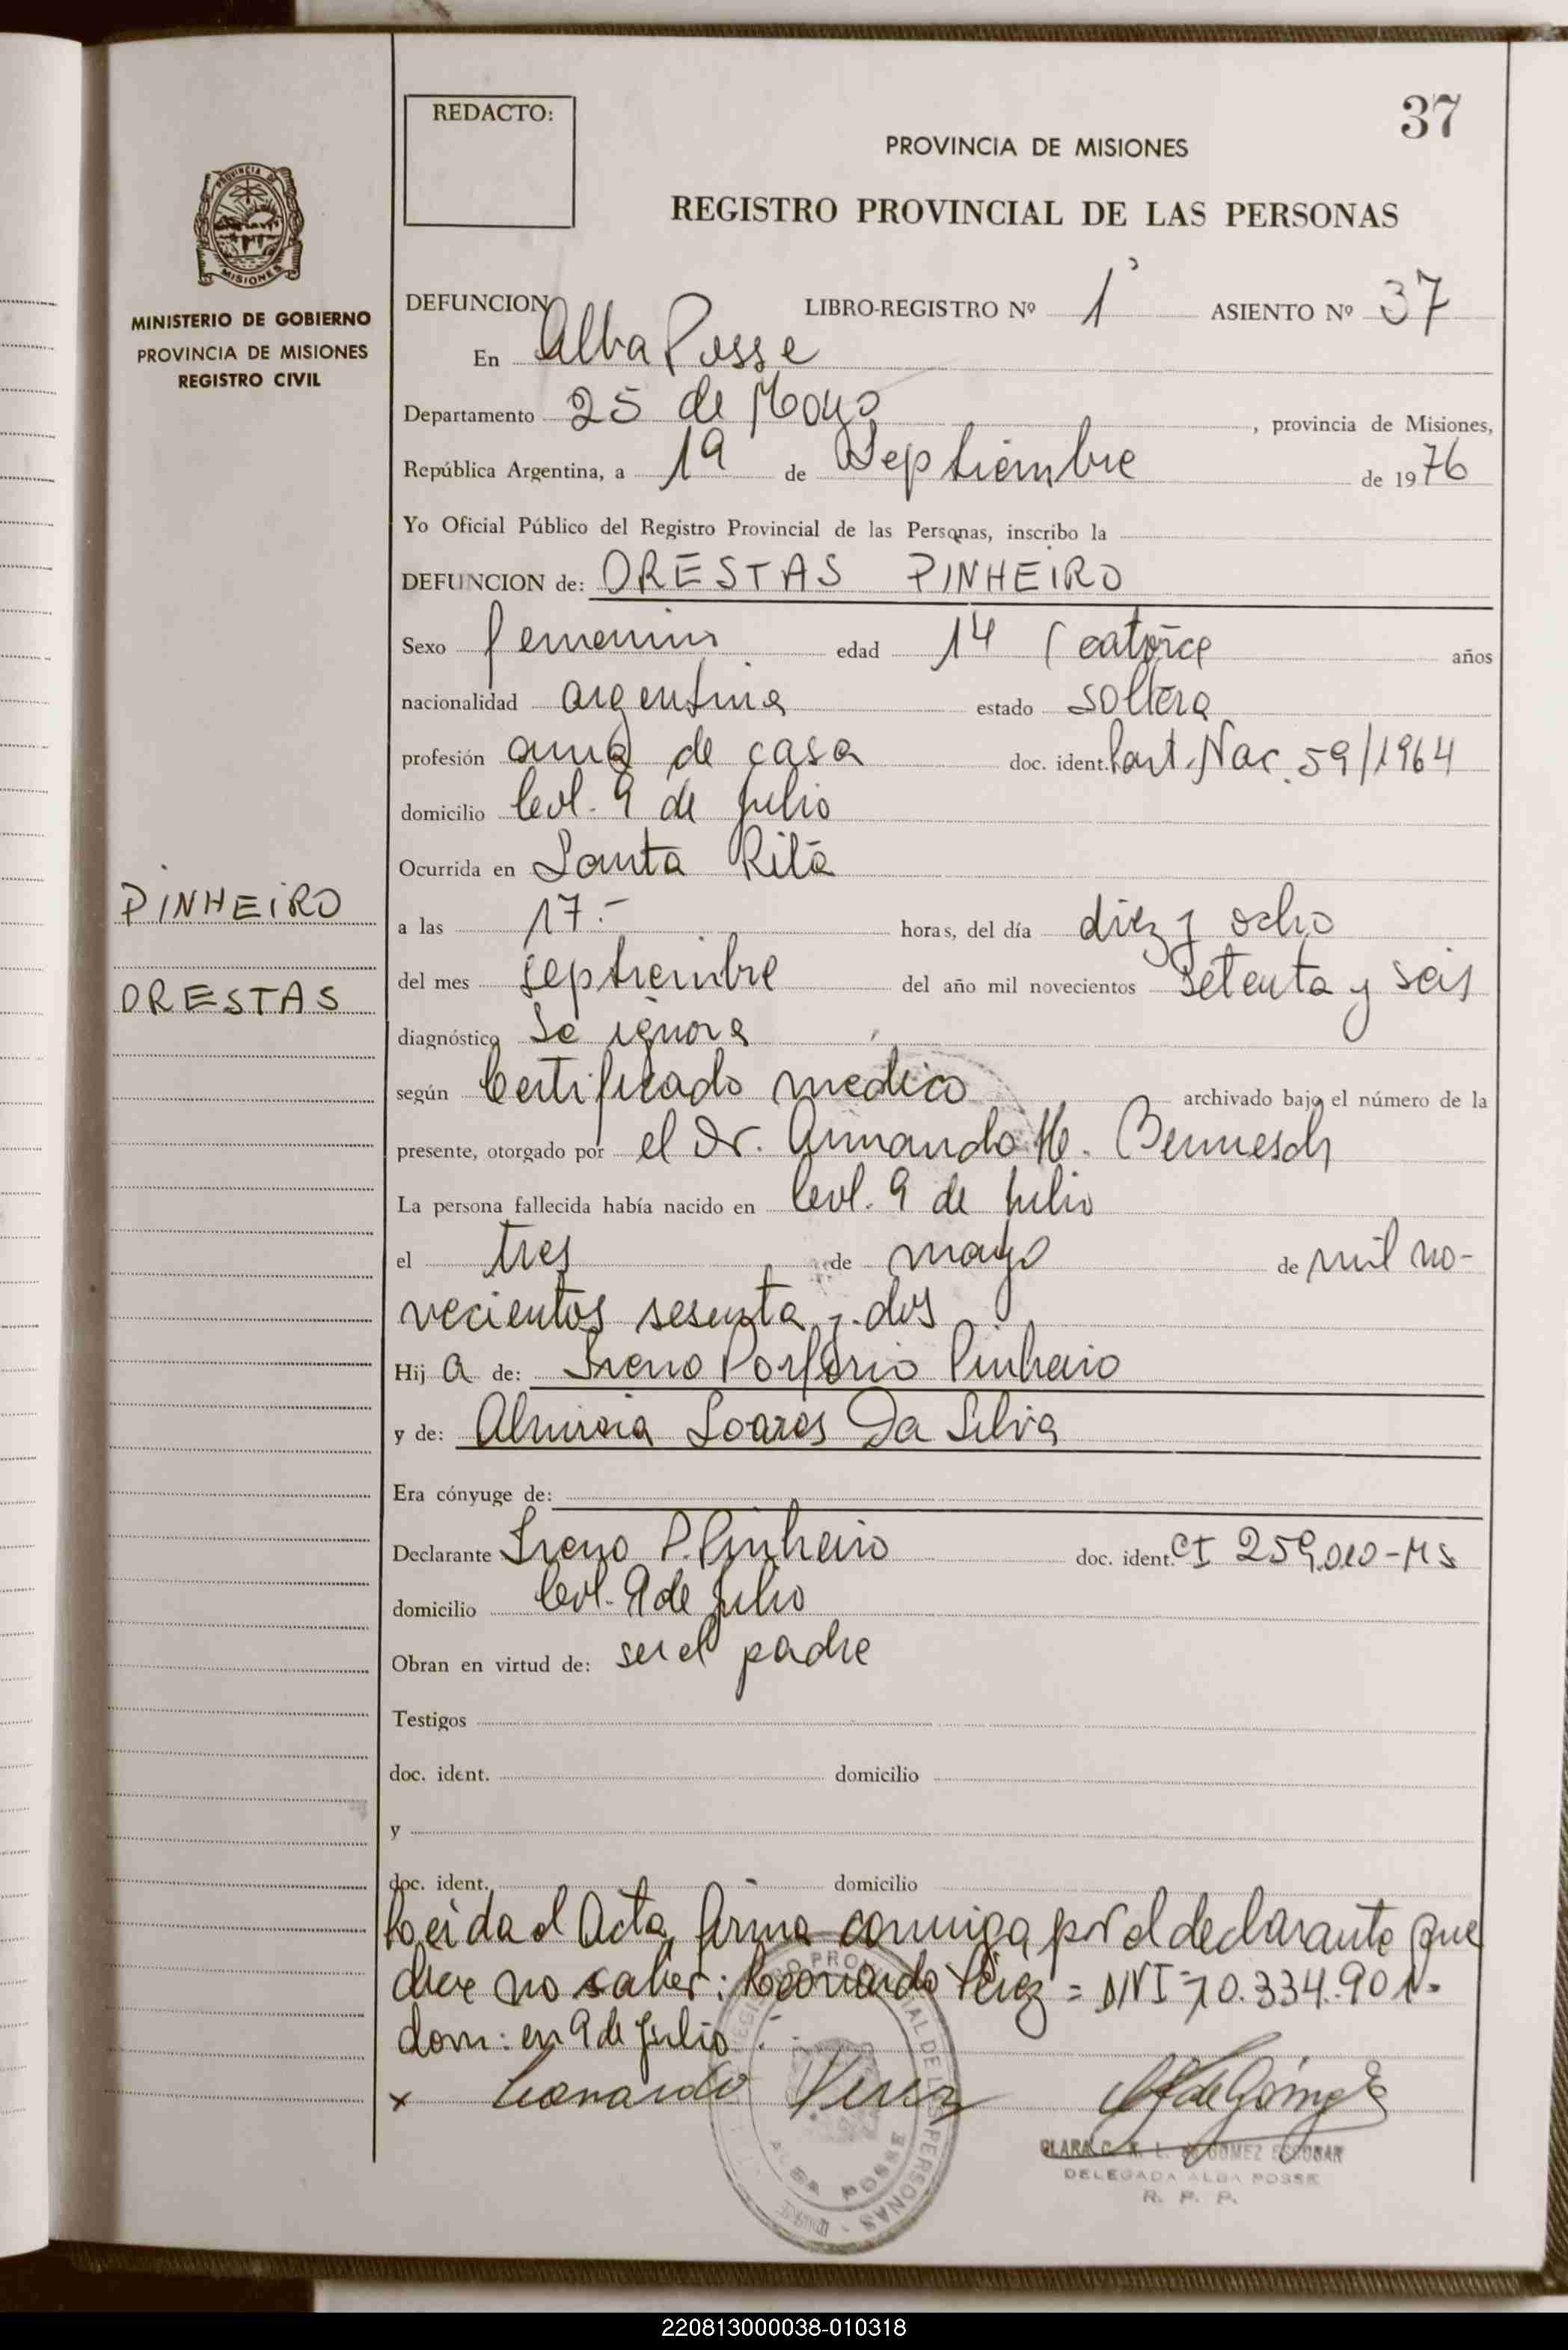 37
REDACTO:
PROVINCIA DE MISIONES
REGISTRO PROVINCIAL DE LAS PERSONAS
PROVINCIA DE
MISIONES
MINISTERIO DE GOBIERNO
PROVINCIA DE MISIONES
REGISTRO CIVIL
DEFUNCION LIBRO-REGISTRO Nº 1° ASIENTO Nº 37
En Alba Posse
Departamento 25 de Mayo, provincia de Misiones,
República Argentina, a 19 de Septiembre de 1976
Yo Oficial Público del Registro Provincial de las Personas, inscribo la
DEFUNCION de: ORESTAS PINHEIRO
Sexo femenino edad 14 (catorce años
nacionalidad argentina estado soltera
profesión ama de casa doc. ident. Part. Nac. 59/1964
domicilio Col. 9 de Julio
Ocurrida en Santa Rita
PINHEIRO
a las 17.- horas, del día diez y ocho
del mes septiembre del año mil novecientos setenta y seis
ORESTAS
diagnóstico Se ignora
según Certificado medico archivado bajo el número de la
presente, otorgado por el Dr. Armando H.
La persona fallecida había nacido en Col. 9 de Julio
el tres de mayo de mil no-
vecientos sesenta y dos
Hija de: Ireno Porfirio Pinheiro
y de: Soares Da Silva
Era cónyuge de:
Declarante Ireno P. Pinheiro doc. ident. CI 259.010-MS
domicilio Col. 9 de Julio
Obran en virtud de: ser el padre
Testigos
doc. ident. domicilio
y
doc. ident. domicilio
Leida el Acta, firma conmigo por el declarante que
dice no saber: Leonardo Pérez = DNI 10.334.901.-
dom: en 9 de Julio.
x Leonardo Perez de Gómez
CLARA C. L. de GOMEZ ESCOBAR
DELEGADA ALBA POSSE
R. P. P.
REGISTRO PROVINCIAL DE LAS PERSONAS
ALBA POSSE
220813000038-010318